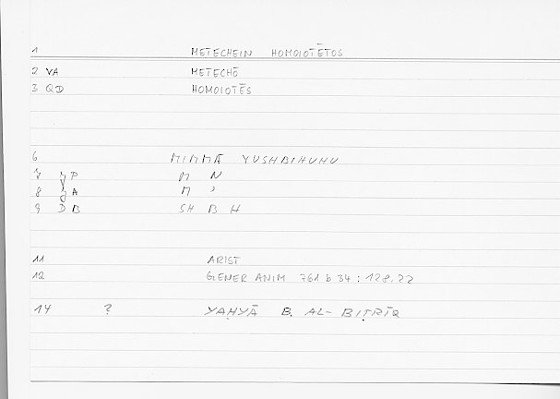 1 METECHEIN HOMOIOTĒTOS
2 VA METECHŌ
3 QD HOMOIOTĒS
6 MIMMĀ YUSHBIHUHU
7 yP M N
8 yA M ʾ
9 DB SH B H
11 ARIST
12 GENER ANIM 761 b 34 : 128,22
14 ? YAḤYĀ B. AL-BIṬRĪQ